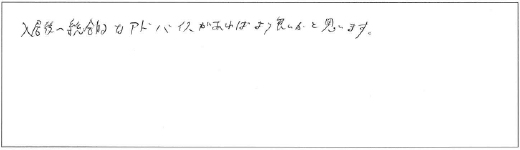 入居後の総合的なアドバイスがあればより良いかと思います。